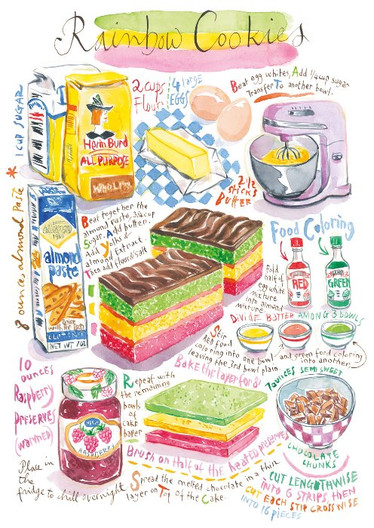 Rainbow Cookies
1 CUP SUGAR
2 cups
Flour
4 large
EGGS
Beat egg whites, Add 1/4 cup sugar
Transfer To another bowl.
ALL PURPOSE
2 1/2
sticks
BUTTER
* 8 ounces almond Paste
almond
paste
NET WT 7OZ
Beat together the
almond paste, 3/4 cup
Sugar. Add butter.
Add Yolks &
almond Extract
Then add flour/salt
Food Coloring
RED
GREEN
Fold
half of
egg white
mixture
into almond
mixture.
DIVIDE BATTER AMONG 3 BOWLS
Stir
Red food
coloring into one bowl
and green food coloring
into another,
leaving the 3rd bowl plain
Bake this layer for 8'
10
OUNCES
Raspberry
PRESERVES
(WARMED)
Repeat with
the remaining
bowls
of
cake
batter
7 ounces SEMI SWEET
CHOCOLATE
CHUNKS
Brush on Half of the heated preserves
Place in
the
fridge to chill overnight
Spread the melted chocolate in a thin
layer on Top of the Cake.
CUT LENGTHWISE
INTO 6 STRIPS then
CUT EACH STIP CROSSWISE
INTO 16 PIECES